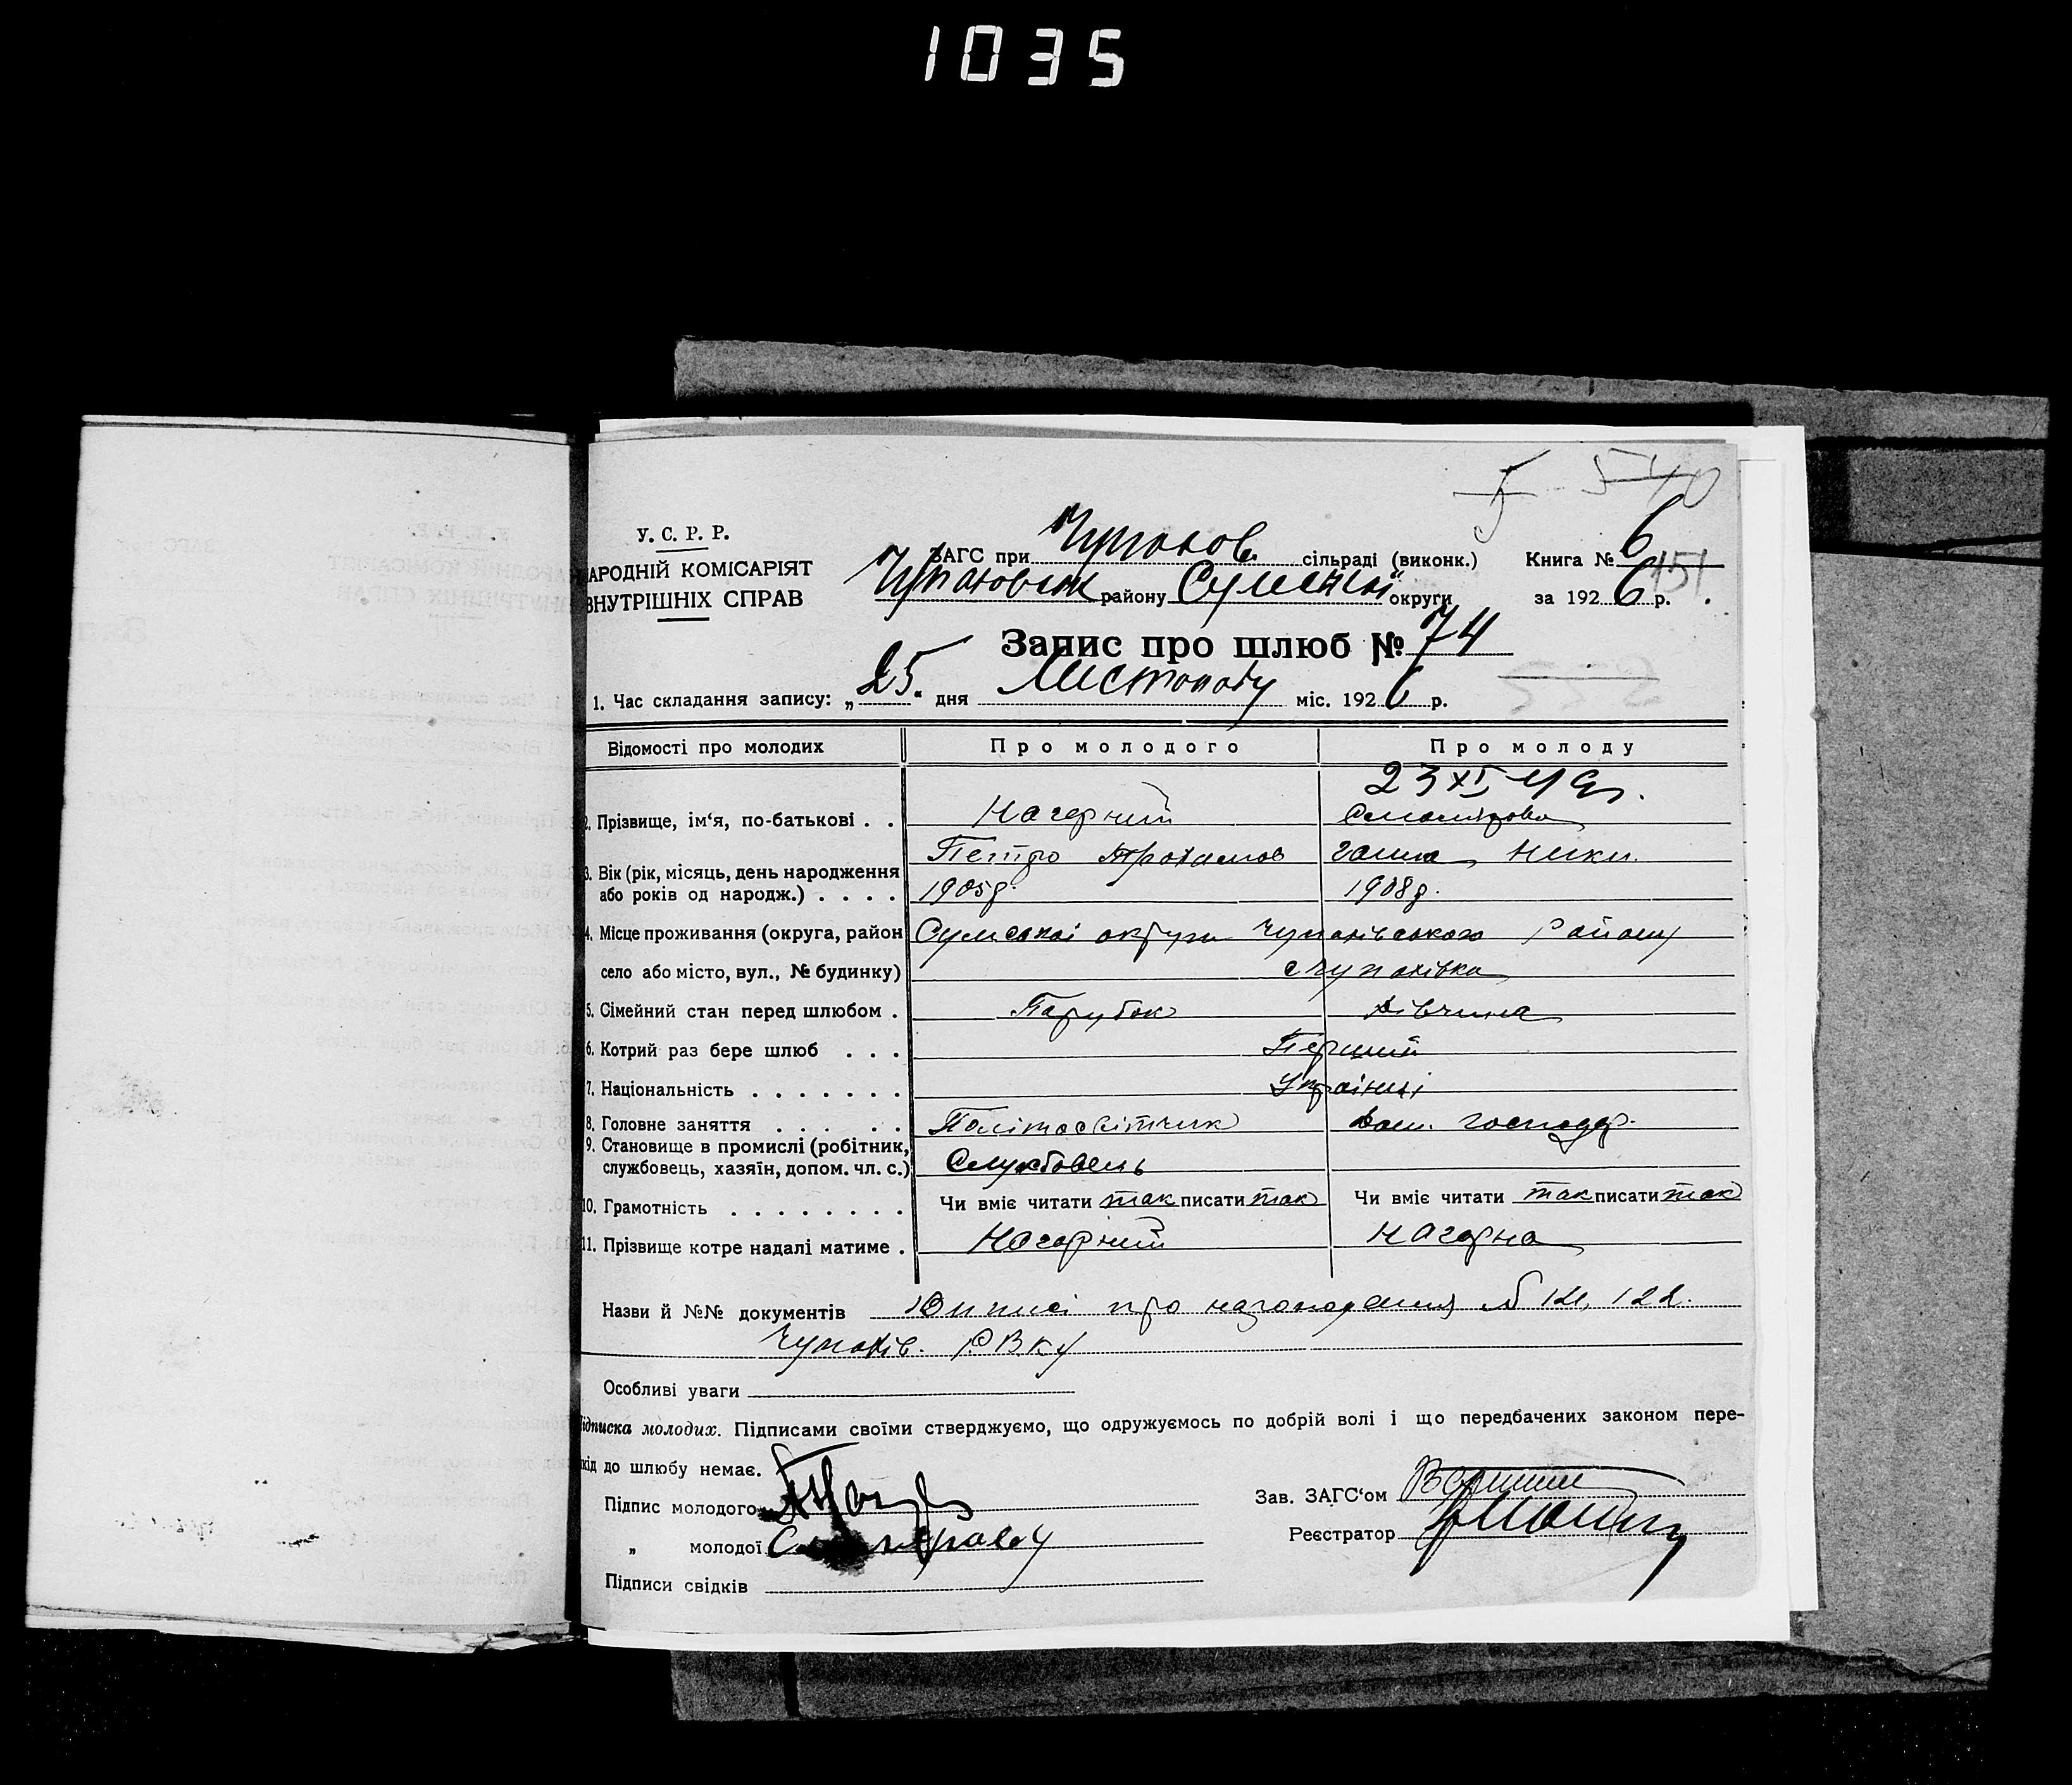 1035
5 5 40
У. С. Р. Р.
АРОДНІЙ КОМІСАРІЯТ
ВНУТРІШНІХ СПРАВ
ЗАГС при Чупахов. сільраді (виконк.) Книга № 6
151
Чупаховськ району Сумськой округи за 1926 р.
Запис про шлюб № 74
1. Час складання запису: „ 25. дня Листопаду міс. 1926 р.
Відомості про молодих Про молодого Про молоду
23 XI
2. Прізвище, ім‘я, по-батькові . . Нагорний
Петро Трохимов Ники.
3. Вік (рік, місяць, день народження
або років од народж.) . . . . 1905р. 1908р.
4. Місце проживання (округа, район Сумської округи Чупахівського Району
село або місто, вул., № будинку) с Чупахівка
5. Сімейний стан перед шлюбом . Парубок Дівчина
6. Котрий раз бере шлюб . . . Перший
7. Національність . . . . . . . Українці
8. Головне заняття . . . . . Політосвітчик Дом. господар.
9. Становище в промислі (робітник,
службовець, хазяїн, допом. чл. с.) Службовець
10. Грамотність . . . . . . . . Чи вміє читати так писати так Чи вміє читати так писати так
11. Прізвище котре надалі матиме . Нагорний Нагорна
Назви й №№ документів Виписі про народження № 121, 122.
Чупахів. Р.В.К.у
Особливі уваги
ідписка молодих. Підписами своїми стверджуємо, що одружуємось по добрій волі і що передбачених законом пере-
кід до шлюбу немає.
Підпис молодого
Зав. ЗАГС‘ом
Реєстратор
„ молодої
Підписи свідків